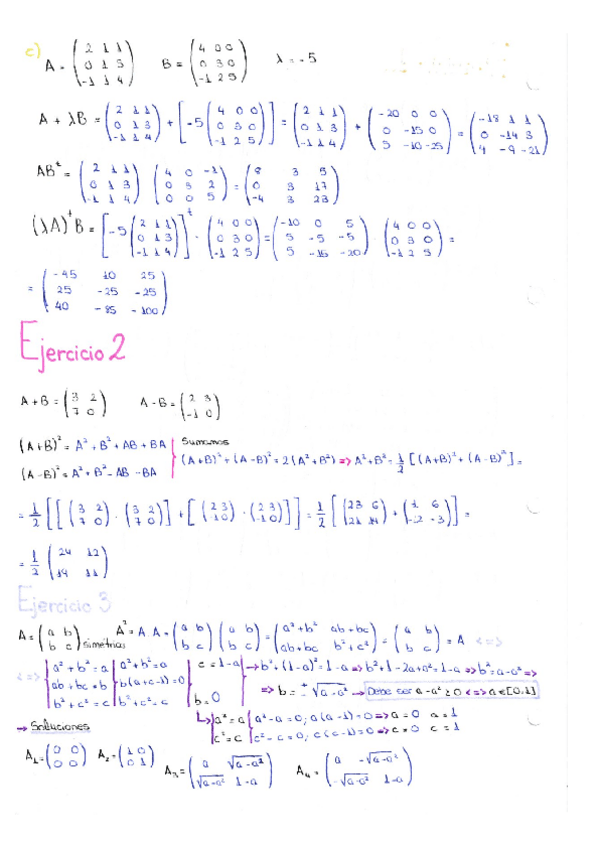 c) A = (2 1 1 / 0 1 3 / -1 1 4) B = (4 0 0 / 0 3 0 / -1 2 5) λ = -5
A + λB = (2 1 1 / 0 1 3 / -1 1 4) + [-5 (4 0 0 / 0 3 0 / -1 2 5)] = (2 1 1 / 0 1 3 / -1 1 4) + (-20 0 0 / 0 -15 0 / 5 -10 -25) = (-18 1 1 / 0 -14 3 / 4 -9 -21)
AB^t = (2 1 1 / 0 1 3 / -1 1 4) (4 0 -1 / 0 3 2 / 0 0 5) = (8 3 5 / 0 3 17 / -4 3 23)
(λA)^t B = [-5 (2 1 1 / 0 1 3 / -1 1 4)]^t · (4 0 0 / 0 3 0 / -1 2 5) = (-10 0 5 / 5 -5 -5 / 5 -15 -20) (4 0 0 / 0 3 0 / -1 2 5) =
= (-45 10 25 / 25 -25 -25 / 40 -85 -100)
Ejercicio 2
A+B = (3 2 / 7 0) A-B = (2 3 / -1 0)
(A+B)² = A² + B² + AB + BA
(A-B)² = A² + B² - AB - BA
Sumamos
(A+B)² + (A-B)² = 2(A² + B²) => A² + B² = 1/2 [(A+B)² + (A-B)²] =
= 1/2 [[(3 2 / 7 0) · (3 2 / 7 0)] + [(2 3 / -1 0) · (2 3 / -1 0)]] = 1/2 [(23 6 / 21 14) + (1 6 / -2 -3)] =
= 1/2 (24 12 / 19 11)
Ejercicio 3
A = (a b / b c) simétrica A² = A·A = (a b / b c) (a b / b c) = (a²+b² ab+bc / ab+bc b²+c²) = (a b / b c) = A <=>
<=> | a²+b² = a | a²+b² = a | c = 1-a → b²+(1-a)² = 1-a => b²+1-2a+a² = 1-a => b² = a-a² =>
| ab+bc = b | b(a+c-1) = 0 => b = ±√a-a² → Debe ser a-a² ≥ 0 <=> a∈[0,1]
| b²+c² = c | b²+c² = c | b = 0
↳ | a² = a | a²-a = 0; a(a-1) = 0 => a = 0 a = 1
| c² = c | c²-c = 0; c(c-1) = 0 => c = 0 c = 1
→ Soluciones
A₁ = (0 0 / 0 0) A₂ = (1 0 / 0 1) A₃ = (a √a-a² / √a-a² 1-a) A₄ = (a -√a-a² / -√a-a² 1-a)